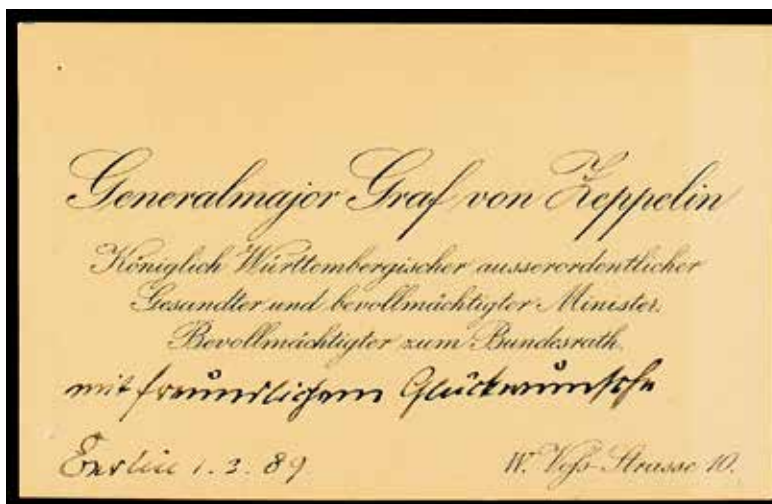 Generalmajor Graf von Zeppelin
Königlich Württembergischer ausserordentlicher
Gesandter und bevollmächtigter Minister.
Bevollmächtigter zum Bundesrath.
mit freundlichem Glückwunsche
Berlin 1. 3. 89. W. Voss-Strasse 10.